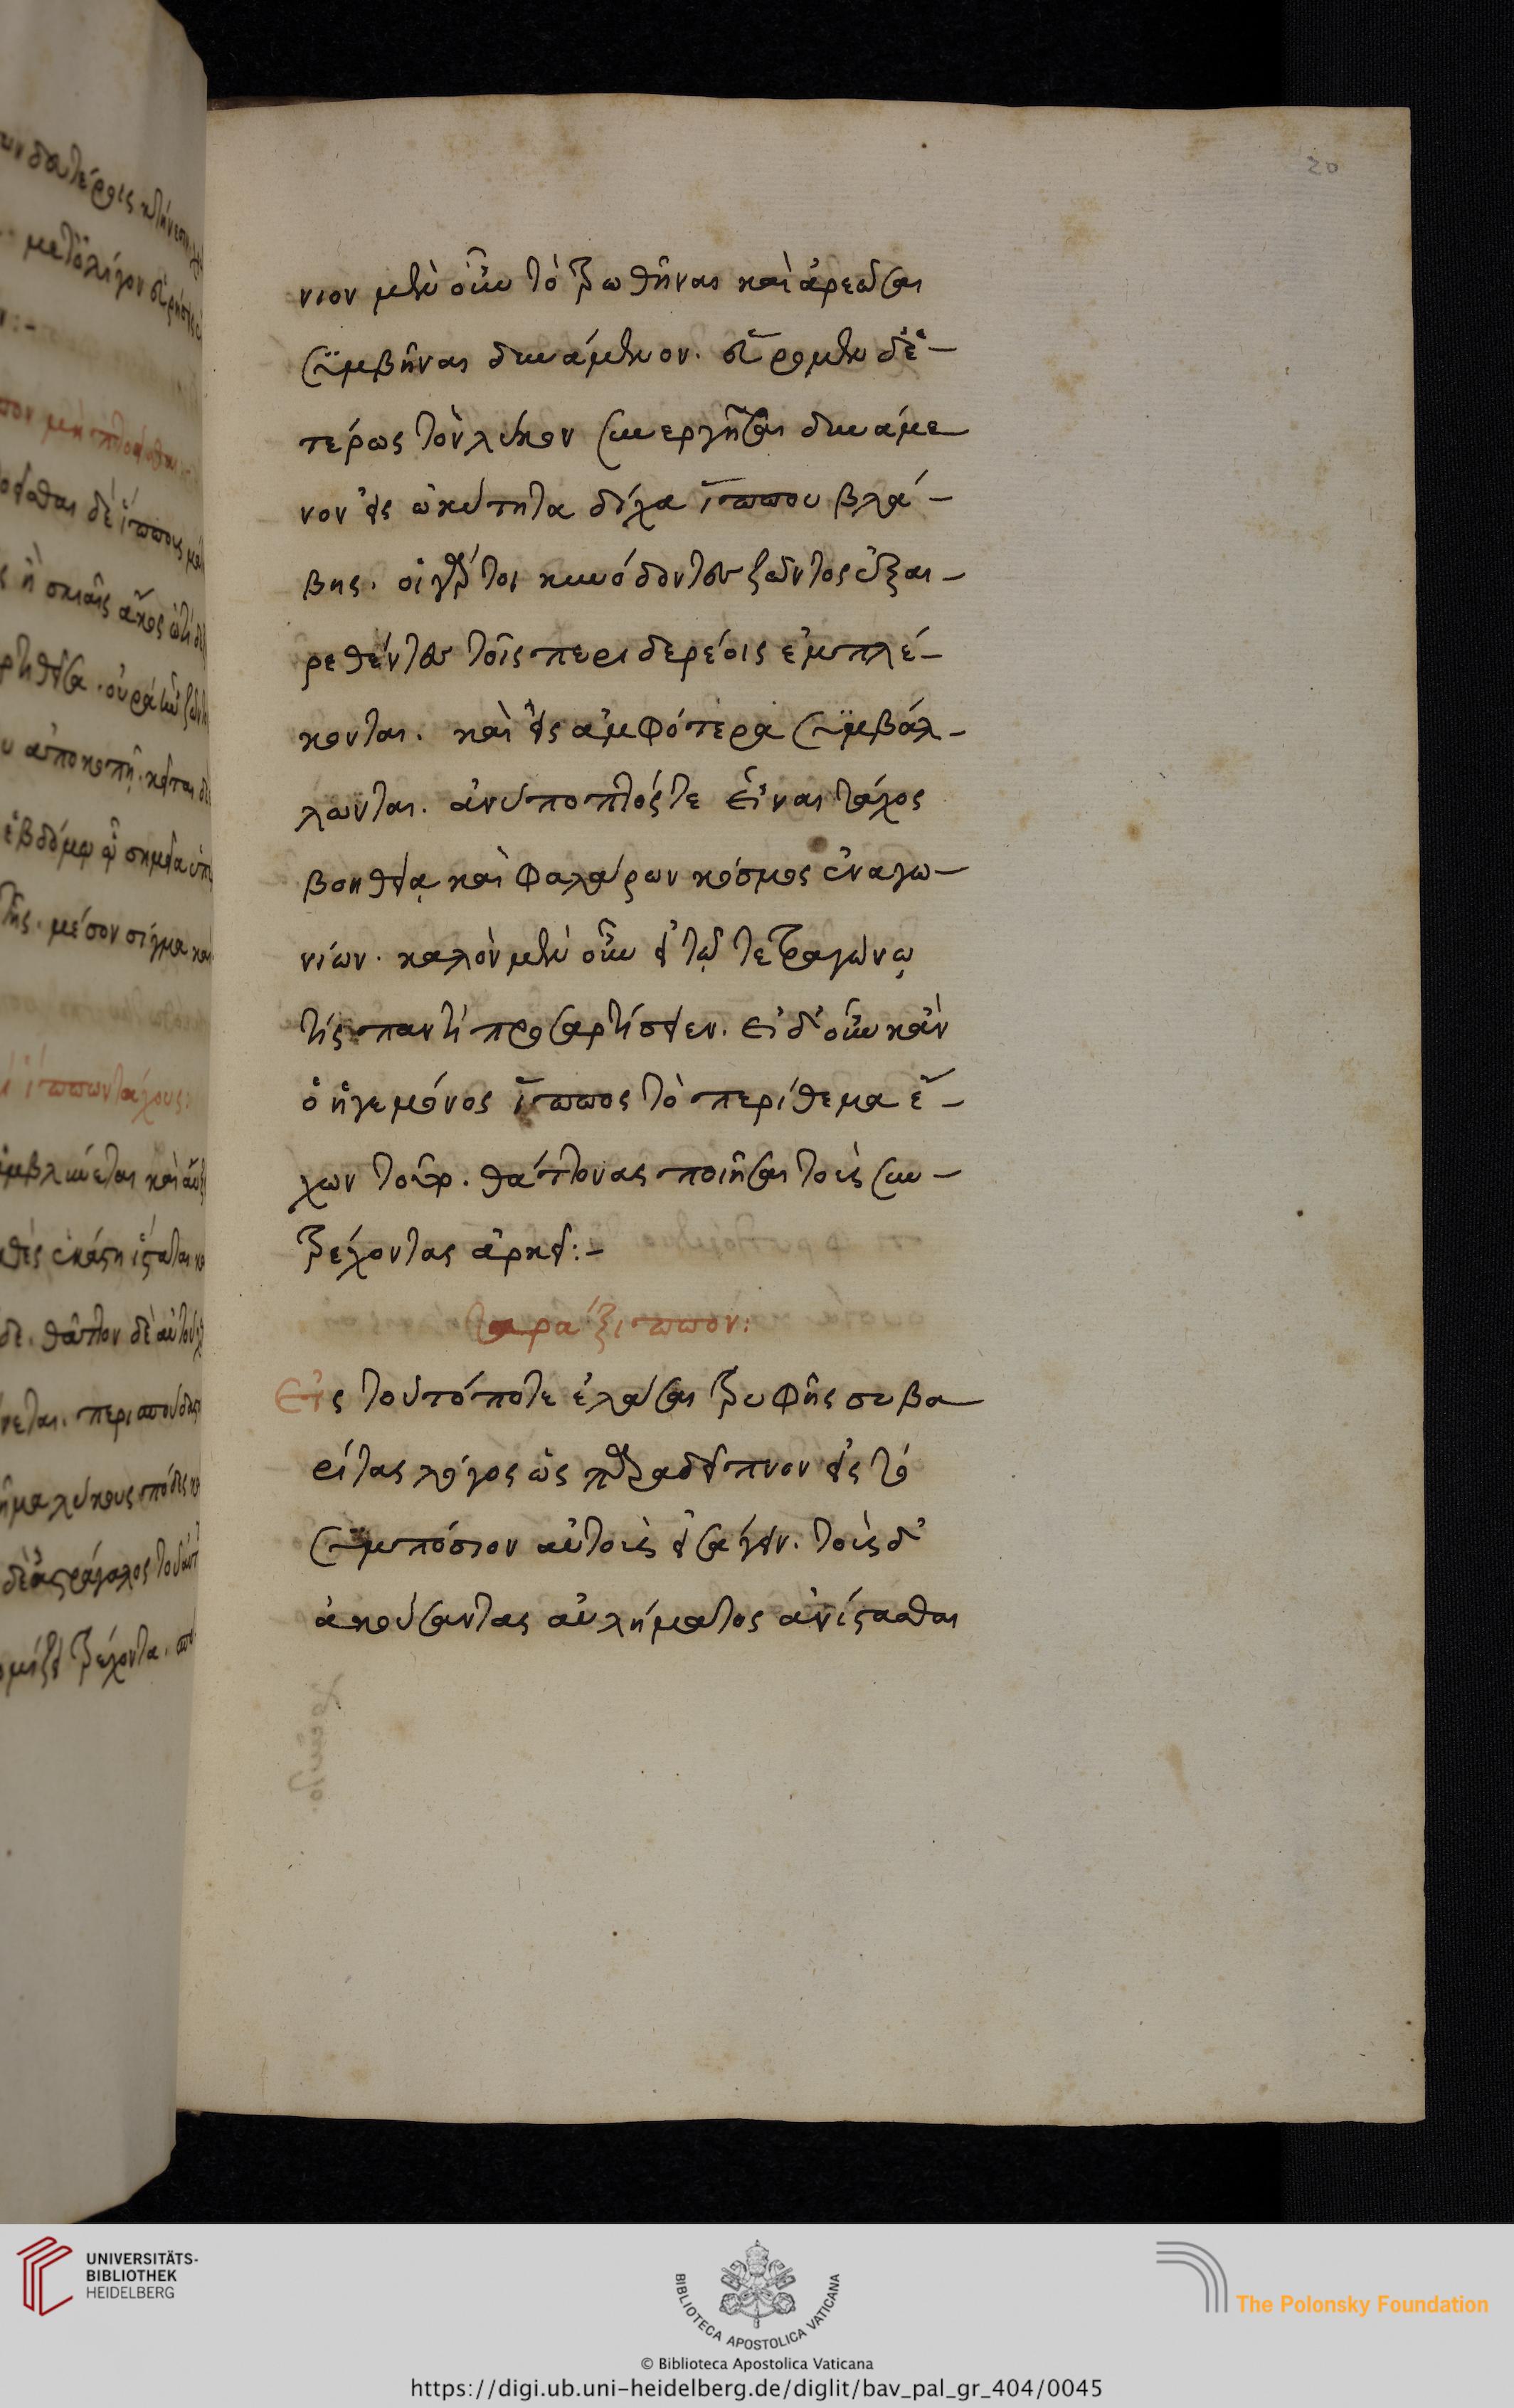 20
νιον μὲν οὖν τὸ τρωθῆναι καὶ ἀρεῶσαι
συμβῆναι δυνάμενον. εὕρομεν δὲ ἑ-
τέρως τὸν λύκον συνεργῆσαι δυνάμε
νον εἰς ὠκύτητα δίχα ἵππου βλά-
βης. οἱ γάρ τοι κυνόδοντες ζῶντος ἐξαι-
ρεθέντες τοῖς περιδερέοις ἐμπλέ-
κονται. καὶ εἰς ἀμφότερα συμβάλ-
λωνται. ἀνύποπτός τε εἶναι τάχος
βοηθεία καὶ φαλάρων κόσμος ἐναγω-
νίων. καλὸν μὲν οὖν εἰ τῷ τετραγώνῳ
τίς παντὶ προσαρτίσειεν. εἰ δ' οὖν κἂν
ὁ ἡγεμόνος ἵππος τὸ περίθεμα ἔ-
χων τοῦτο. θάττονας ποιῆσαι τοὺς συν-
τρέχοντας ἀρκεῖ:-
ταράξιππον:
Εἰς τοῦτό ποτε ἐλάσαι τρυφῆς συβα
ρίτας λόγος ὡς παραδειπνον εἰς τὸ
συμπόσιον αὐτοὺς εἰσάγειν. τοὺς δ'
ἀκούσαντας αὐλήματος ἀνίστασθαι
UNIVERSITÄTS-
BIBLIOTHEK
HEIDELBERG
BIBLIOTECA APOSTOLICA VATICANA
The Polonsky Foundation
© Biblioteca Apostolica Vaticana
https://digi.ub.uni-heidelberg.de/diglit/bav_pal_gr_404/0045